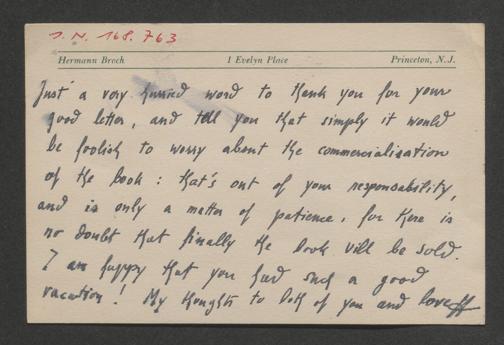 J. N. 168.763
Hermann Broch 1 Evelyn Place Princeton, N.J.
Just a very hurried word to thank you for your
good letter, and tell you that simply it would
be foolish to worry about the commercialisation
of the book: that's out of your responsability,
and is only a matter of patience, for there is
no doubt that finally the book will be sold.
I am happy that you had such a good
vacation! My thoughts to both of you and love